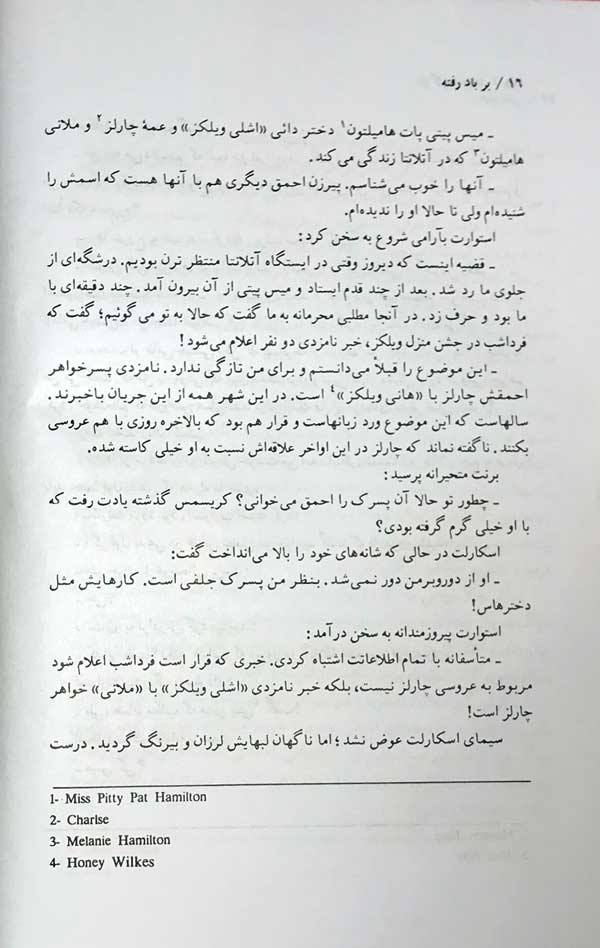 ۱۶ / بر باد رفته
ـ میس پیتی پات هامیلتون۱ دختر دائی «اشلی ویلکز» و عمهٔ چارلز۲ و ملانی
هامیلتون۳ که در آتلانتا زندگی می‌کند.
ـ آنها را خوب می‌شناسم. پیرزن احمق دیگری هم با آنها هست که اسمش را
شنیده‌ام ولی تا حالا او را ندیده‌ام.
استوارت بآرامی شروع به سخن کرد:
ـ قضیه اینست که دیروز وقتی در ایستگاه آتلانتا منتظر ترن بودیم. درشگه‌ای از
جلوی ما رد شد. بعد از چند قدم ایستاد و میس پیتی از آن بیرون آمد. چند دقیقه‌ای با
ما بود و حرف زد. در آنجا مطلبی محرمانه به ما گفت که حالا به تو می‌گوئیم؛ گفت که
فرداشب در جشن منزل ویلکز، خبر نامزدی دو نفر اعلام می‌شود!
ـ این موضوع را قبلاً می‌دانستم و برای من تازگی ندارد. نامزدی پسرخواهر
احمقش چارلز با «هانی ویلکز»۴ است. در این شهر همه از این جریان باخبرند.
سالهاست که این موضوع ورد زبانهاست و قرار هم بود که بالاخره روزی با هم عروسی
بکنند. ناگفته نماند که چارلز در این اواخر علاقه‌اش نسبت به او خیلی کاسته شده.
برنت متحیرانه پرسید:
ـ چطور تو حالا آن پسرک را احمق می‌خوانی؟ کریسمس گذشته یادت رفت که
با او خیلی گرم گرفته بودی؟
اسکارلت در حالی که شانه‌های خود را بالا می‌انداخت گفت:
ـ او از دوروبرمن دور نمی‌شد. بنظر من پسرک جلفی است. کارهایش مثل
دخترهاس!
استوارت پیروزمندانه به سخن درآمد:
ـ متأسفانه با تمام اطلاعاتت اشتباه کردی. خبری که قرار است فرداشب اعلام شود
مربوط به عروسی چارلز نیست، بلکه خبر نامزدی «اشلی ویلکز» با «ملانی» خواهر
چارلز است!
سیمای اسکارلت عوض نشد؛ اما ناگهان لبهایش لرزان و بیرنگ گردید. درست
1- Miss Pitty Pat Hamilton
2- Charlse
3- Melanie Hamilton
4- Honey Wilkes